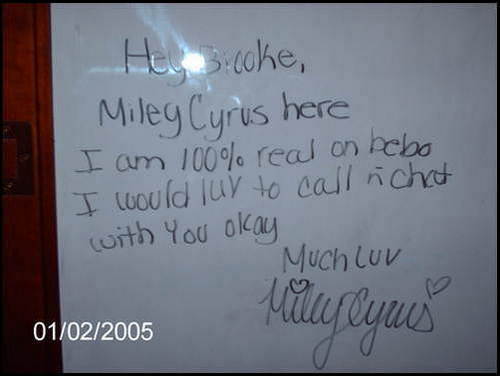 Hey Brooke,
Miley Cyrus here
I am 100% real on bebo
I would luv to call n chat
with You okay
Much Luv
Miley Cyrus
01/02/2005